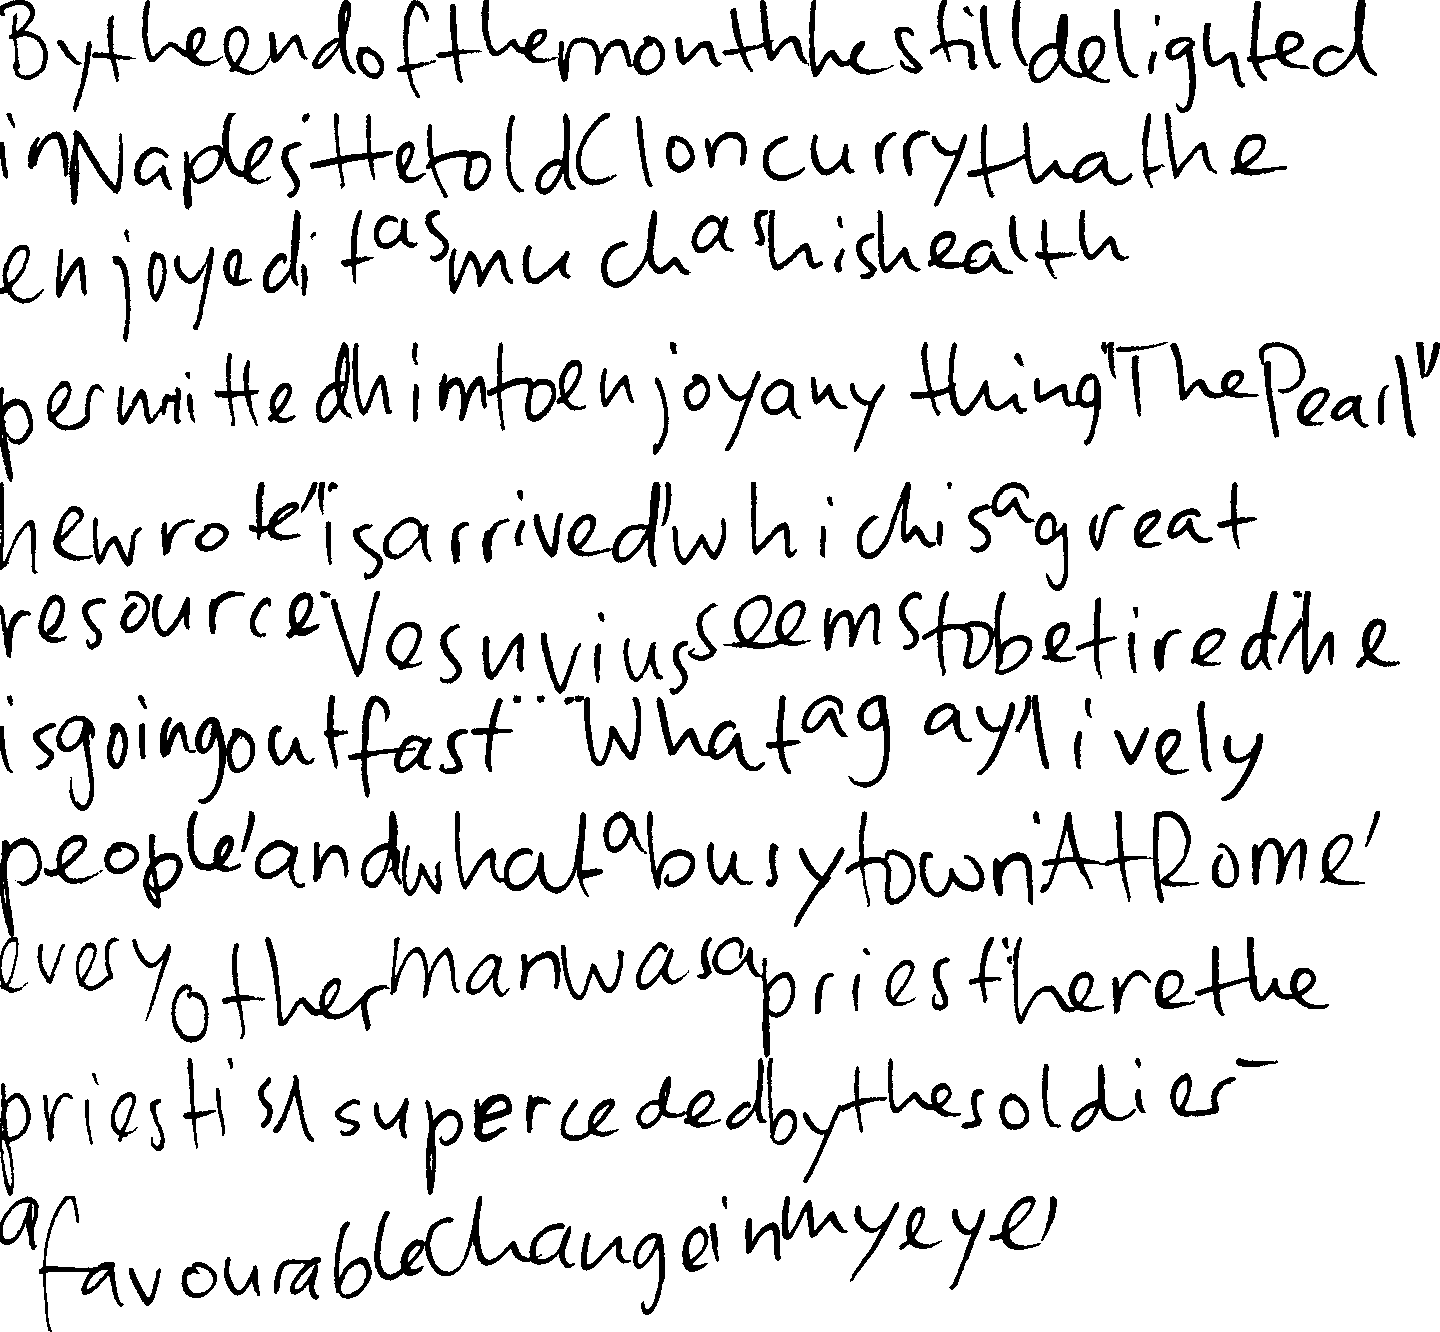 By the end of the month he still delighted
in Naples. He told Cloncurry that he
enjoyed it as much as his health
permitted him to enjoy anything. "The Pearl"
he wrote "is arrived" which is a great
resource. Vesuvius seems to be tired; he
is going out fast... What a gay, lively
people, and what a busy town. At Rome,
every other man was a priest; here the
priest is superceded by the soldier -
a favourable change in my eye,